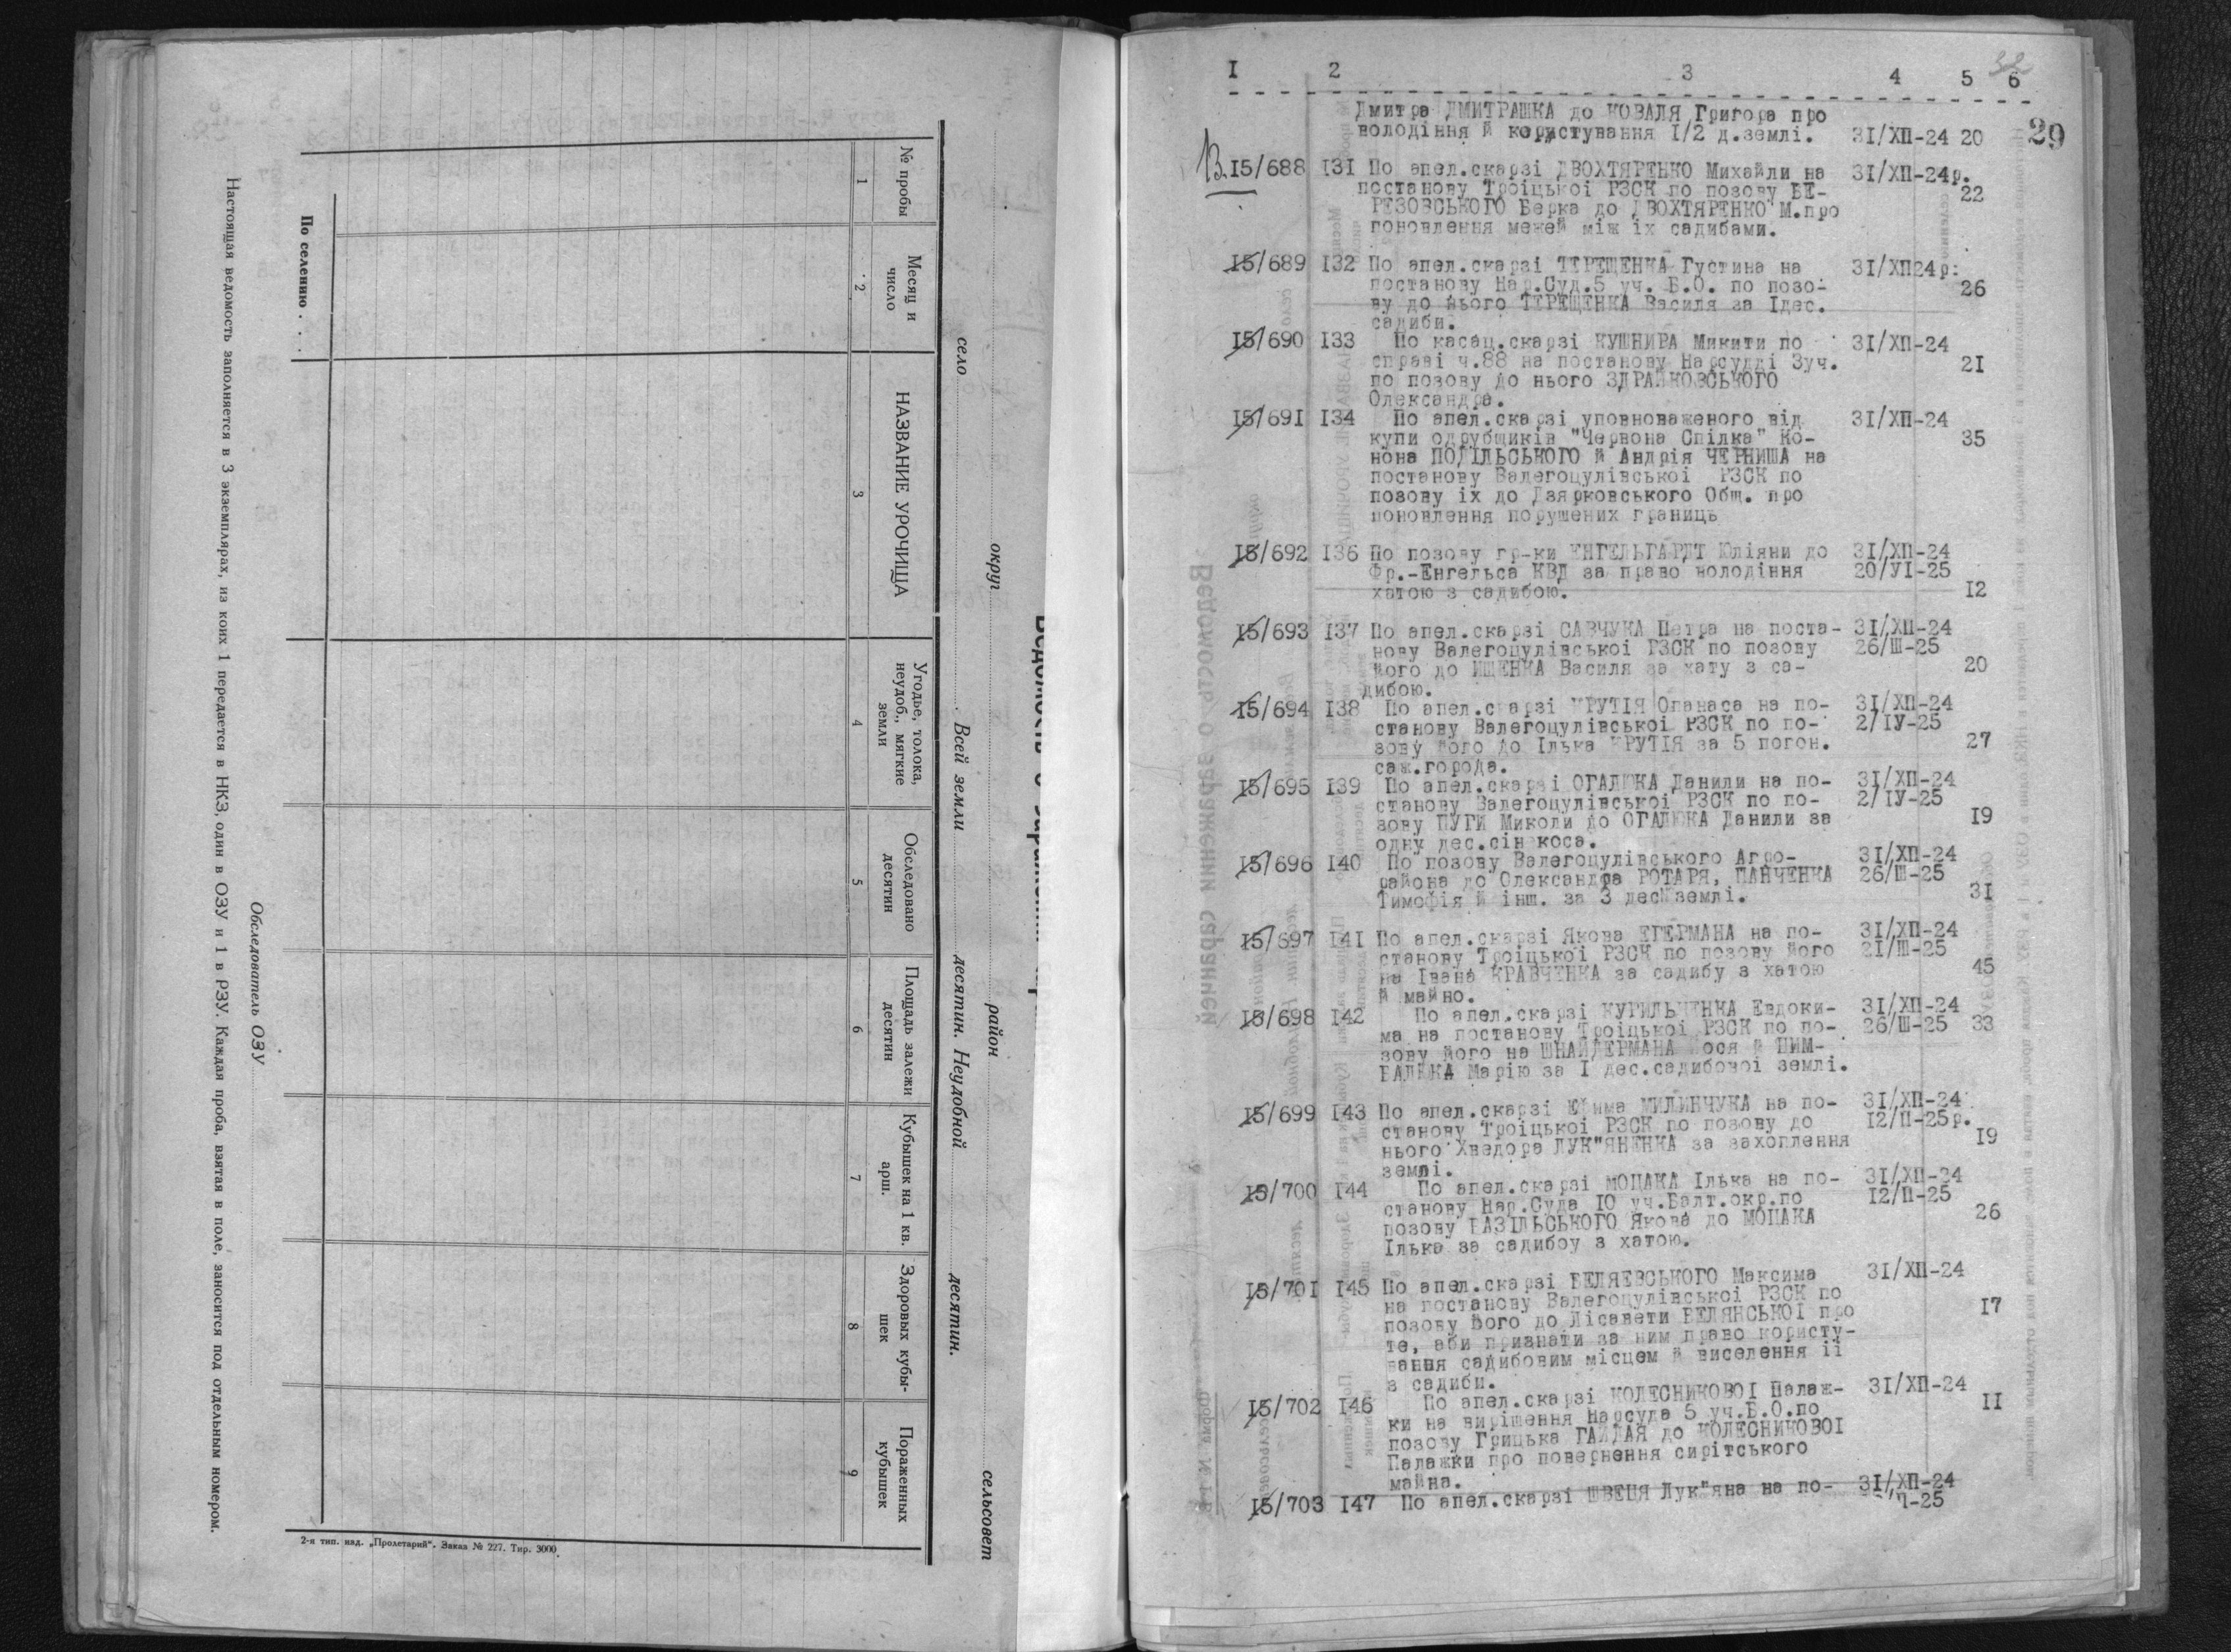 Ведомость о заражении
округ район сельсовет
село Всей земли десятин. Неудобной десятин.
№ пробы
Месяц и число
НАЗВАНИЕ УРОЧИЩА
Угодье, толока, неудоб., мягкие земли
Обследовано десятин
Площадь залежи десятин
Кубышек на 1 кв. арш.
Здоровых кубышек
Пораженных кубышек
1 2 3 4 5 6 7 8 9
По селению . . .
Обследователь ОЗУ
Настоящая ведомость заполняется в 3 экземплярах, из коих 1 передается в НКЗ, один в ОЗУ и 1 в РЗУ. Каждая проба, взятая в поле, заносится под отдельным номером.
2-я тип. изд. „Пролетарий“. Заказ № 227. Тир. 3000
32
I 2 3 4 5 6
29
Дмитра ДМИТРАШКА до КОВАЛЯ Григора про
володіння й користування I/2 д.землі. 3I/ХП-24 20
I5/688 I3I По апел.скарзі ДВОХТЯРЕНКО Михайли на 3I/ХП-24р.
постанову Троіцькоі РЗСК по позову БЕ- 22
РЕЗОВСЬКОГО Берка до ДВОХТЯРЕНКО М.про
поновлення межей між іх садибами.
I5/689 I32 По апел.скарзі ТЕРЕЩЕНКА Густина на 3I/ХП24р:
постанову Нар.Суд.5 уч. Б.О. по позо- 26
ву до нього ТЕРЕЩЕНКА Василя за Iдес.
садиби.
I5/690 I33 По касац.скарзі КУШНИРА Микити по 3I/ХП-24
справі ч.88 на постанову Нарсудді 3уч. 2I
по позову до нього ЗДРАЙКОВСЬКОГО
Олександра.
I5/69I I34 По апел.скарзі уповноваженого від 3I/ХП-24
купи одрубщиків "Червона Спілка" Ко- 35
нона ПОДІЛЬСЬКОГО й Андрія ЧЕРНИША на
постанову Валегоцулівськоі РЗСК по
позову іх до Дзярковського Общ. про
поновлення порушених границь
I5/692 I36 По позову гр-ки ЕНГЕЛЬГАРДТ Юліяни до 3I/ХП-24
Фр.-Енгельса КВД за право володіння 20/УI-25
хатою з садибою. I2
I5/693 I37 По апел.скарзі САВЧУКА Петра на поста- 3I/ХП-24
нову Валегоцулівськоі РЗСК по позову 26/Ш-25
його до ИЩЕНКА Василя за хату з са- 20
дибою.
I5/694 I38 По апел.скарзі КРУТІЯ Опанаса на по- 3I/ХП-24
станову Валегоцулівськоі РЗСК по по- 2/IУ-25
зову його до Ілька КРУТІЯ за 5 погон. 27
саж.города.
I5/695 I39 По апел.скарзі ОГАЛЮКА Данили на по- 3I/ХП-24
станову Валегоцулівськоі РЗСК по по- 2/IУ-25
зову ПУГИ Миколи до ОГАЛЮКА Данили за I9
одну дес.сінокоса.
I5/696 I40 По позову Валегоцулівського Агро- 3I/ХП-24
района до Олександра РОТАРЯ, ПАНЧЕНКА 26/Ш-25
Тимофія й інш. за 3 дес.землі. 3I
I5/697 I4I По апел.скарзі Якова ЕГЕРМАНА на по- 3I/ХП-24
станову Троіцькоі РЗСК по позову його 2I/Ш-25
на Івана КРАВЧЕНКА за садибу з хатою 45
й майно.
I5/698 I42 По апел.скарзі КУРИЛЬЧЕНКА Евдоки- 3I/ХП-24
ма на постанову Троіцькоі РЗСК по по- 26/Ш-25 33
зову його на ШНАЙДЕРМАНА Йося й ЦИМ-
БАЛЮКА Марію за I дес.садибовоі землі.
I5/699 I43 По апел.скарзі Юхима МИЛИНЧУКА на по- 3I/ХП-24
станову Троіцькоі РЗСК по позову до I2/П-25р.
нього Хведора ЛУК"ЯНЕНКА за захоплення I9
землі.
I5/700 I44 По апел.скарзі МОЦАКА Ілька на по- 3I/ХП-24
станову Нар.Суда IO уч.Балт.окр.по I2/П-25
позову БАЗІЛЬСЬКОГО Якова до МОЦАКА 26
Ілька за садибоу з хатою.
I5/70I I45 По апел.скарзі БЕЛЯЕВСЬКОГО Максима 3I/ХП-24
на постанову Валегоцулівськоі РЗСК по
позову його до Лісавети БЕЛЯНСЬКОІ про I7
те, аби признати за ним право користу-
вання садибовим місцем й виселення іі
з садиби.
I5/702 I46 По апел.скарзі КОЛЕСНИКОВОІ Палаж- 3I/ХП-24
ки на вирішення Нарсуда 5 уч.Б.О.по II
позову Грицька ГАЙДАЯ до КОЛЕСНИКОВОІ
Палажки про повернення сирітського
майна.
I5/703 I47 По апел.скарзі ШВЕЦЯ Лук"яна на по- 3I/ХП-24
-25